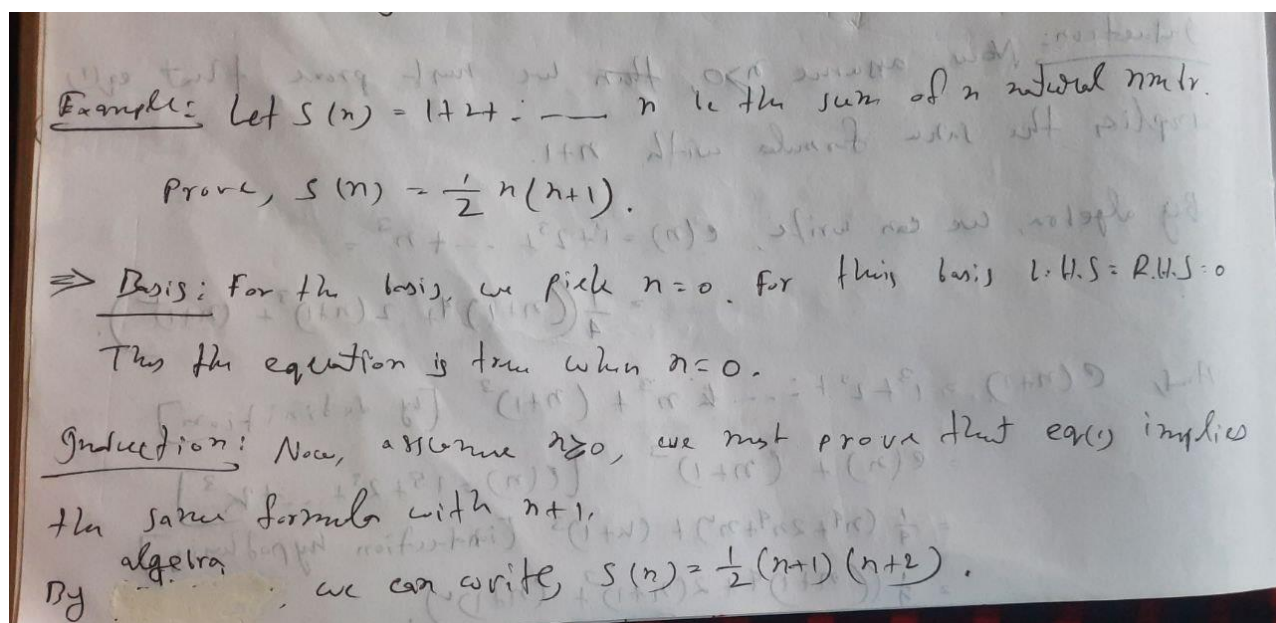 Example: Let S(n) = 1+2+ - --- n be the sum of n natural nmbr.
Prove, S(n) = 1/2 n(n+1).
⇒ Basis: For the basis, we pick n=0. For this basis L.H.S = R.H.S = 0
Thus the equation is true when n=0.
Induction: Now, assume n≥0, we must prove that eq(1) implies
the same formula with n+1.
By algebra, we can write, S(n) = 1/2 (n+1)(n+2).